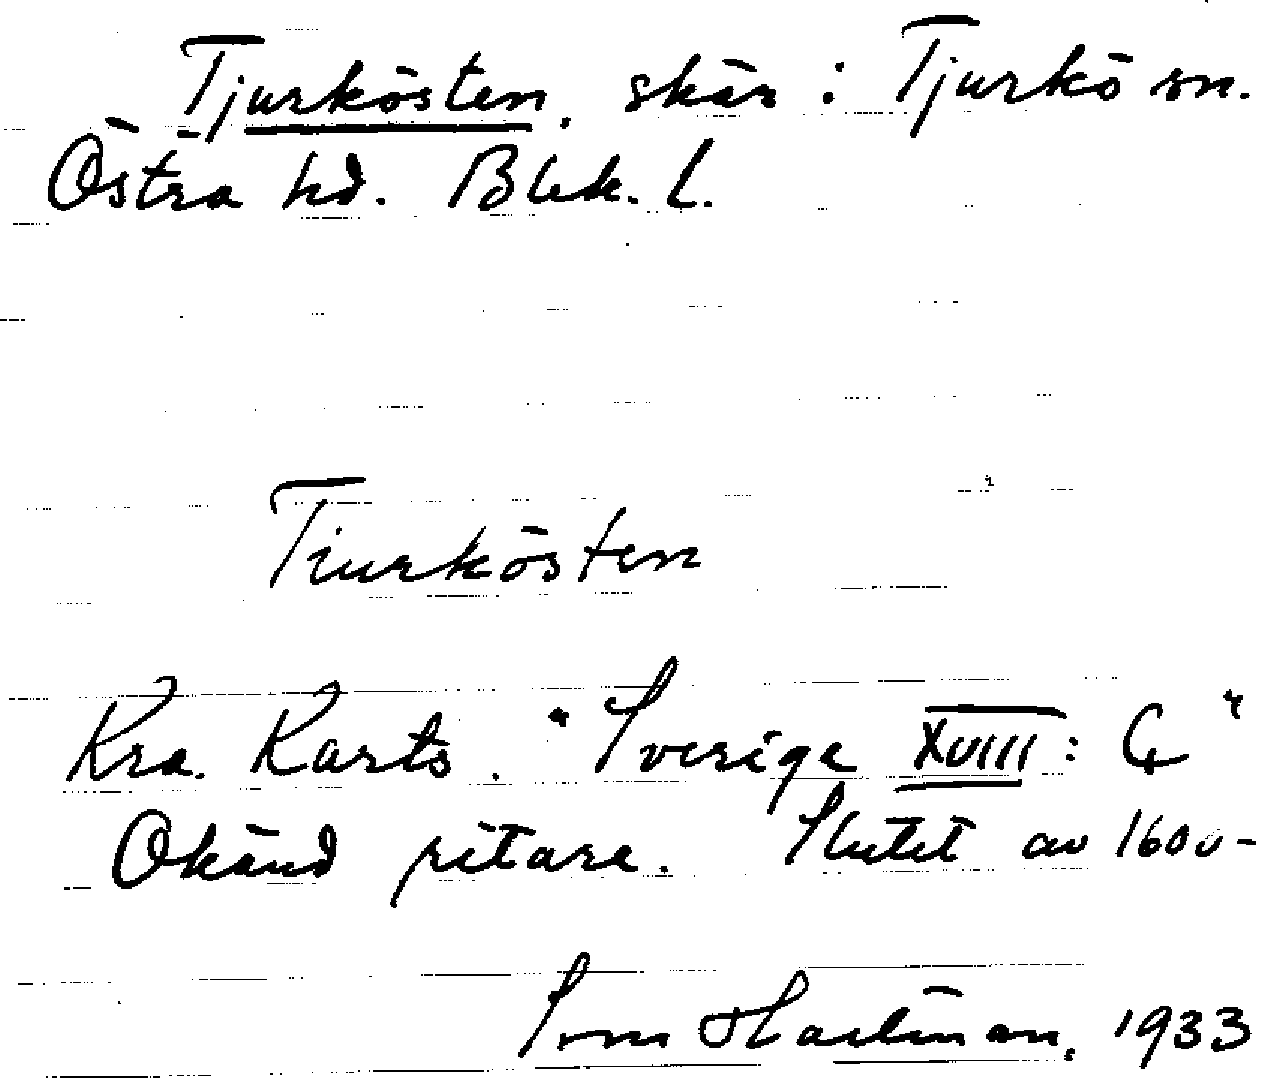 Tjurkösten, skär: Tjurkö sn.
Östra hd. Blek. l.
Tiurkösten
Kra. Karts. "Sverige XVIIII: G"
Okänd ritare. Slutet av 1600-
Hartman. 1933